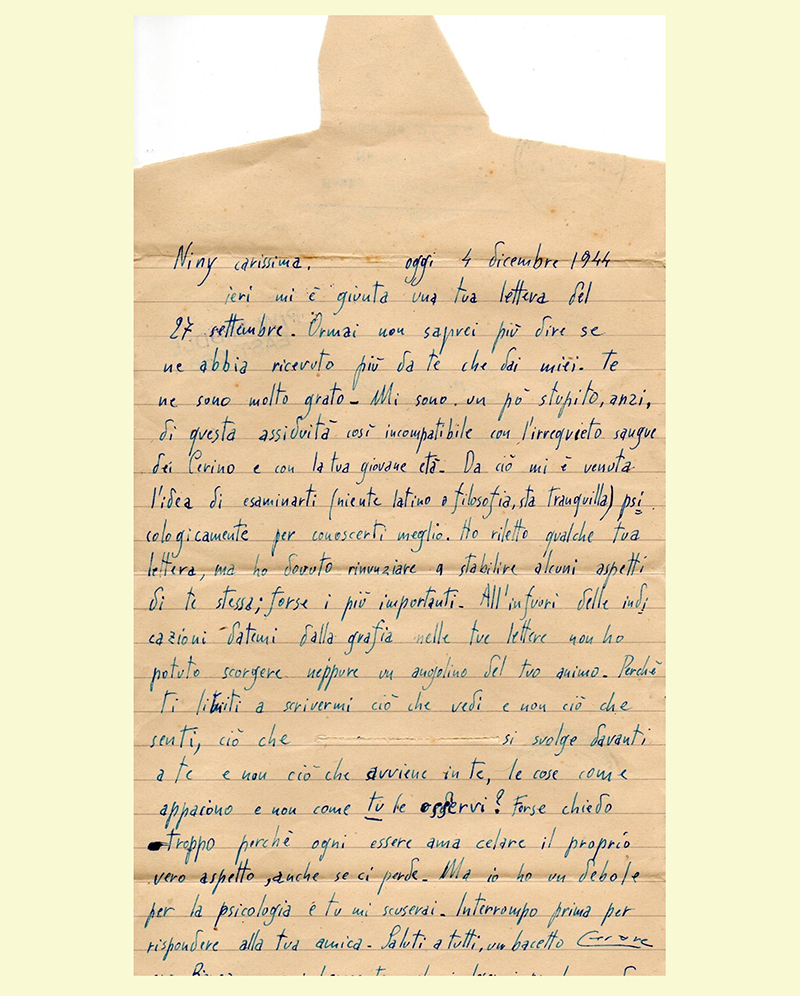 Niny carissima. oggi 4 dicembre 1944
ieri mi è giunta una tua lettera del
27 settembre - Ormai non saprei più dire se
ne abbia ricevuto più da te che dai miei - Te
ne sono molto grato - Mi sono un pò stupito, anzi,
di questa assiduità così incompatibile con l'irrequieto sangue
dei Cerino e con la tua giovane età - Da ciò mi è venuta
l'idea di esaminarti (niente latino o filosofia, sta tranquilla) psi
cologicamente per conoscerti meglio. Ho riletto qualche tua
lettera, ma ho dovuto rinunziare a stabilire alcuni aspetti
di te stessa; forse i più importanti - All'infuori delle indi
cazioni datemi dalla grafia nelle tue lettere non ho
potuto scorgere neppure un angolino del tuo animo - Perchè
ti limiti a scrivermi ciò che vedi e non ciò che
senti, ciò che si svolge davanti
a te e non ciò che avviene in te, le cose come
appaiono e non come tu le osservi? Forse chiedo
troppo perchè ogni essere ama celare il proprio
vero aspetto, anche se ci perde - Ma io ho un debole
per la psicologia e tu mi scuserai - Interrompo prima per
rispondere alla tua amica - Saluti a tutti, un bacetto Cesare